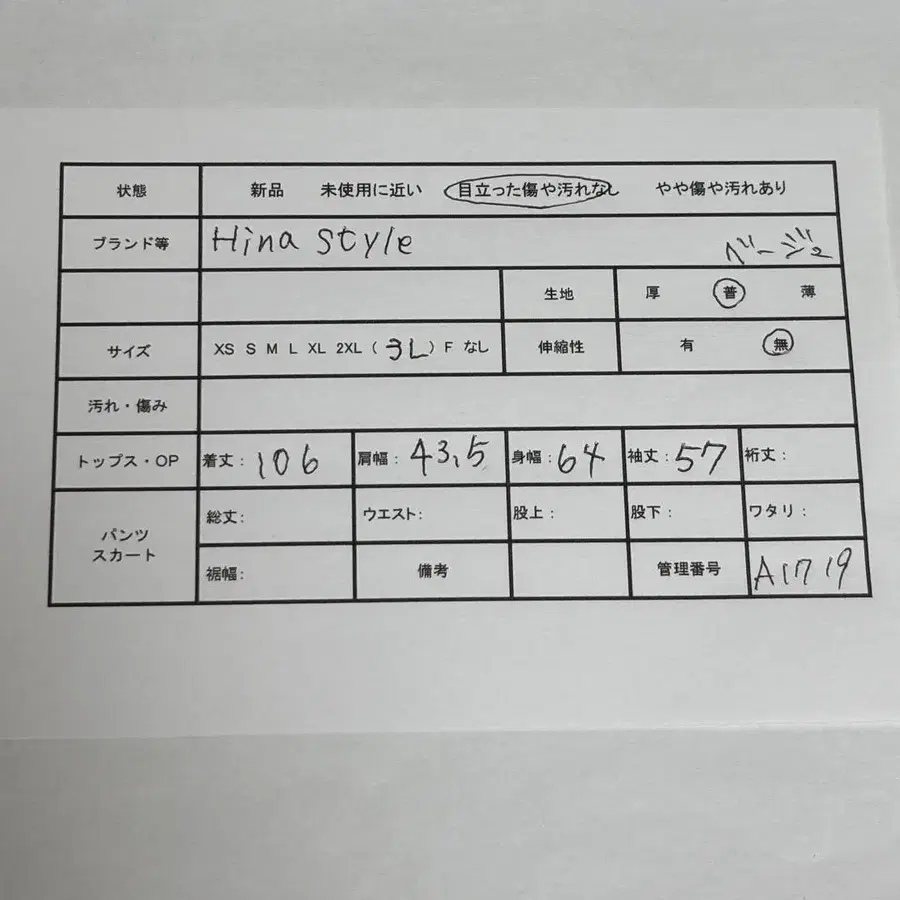 状態 新品 未使用に近い 目立った傷や汚れなし やや傷や汚れあり
ブランド等 Hina style ベージュ
生地 厚 普 薄
サイズ XS S M L XL 2XL ( 3L ) F なし 伸縮性 有 無
汚れ・傷み
トップス・OP 着丈: 106 肩幅: 43,5 身幅: 64 袖丈: 57 裄丈:
パンツ スカート 総丈: ウエスト: 股上: 股下: ワタリ:
裾幅: 備考 管理番号 A1719